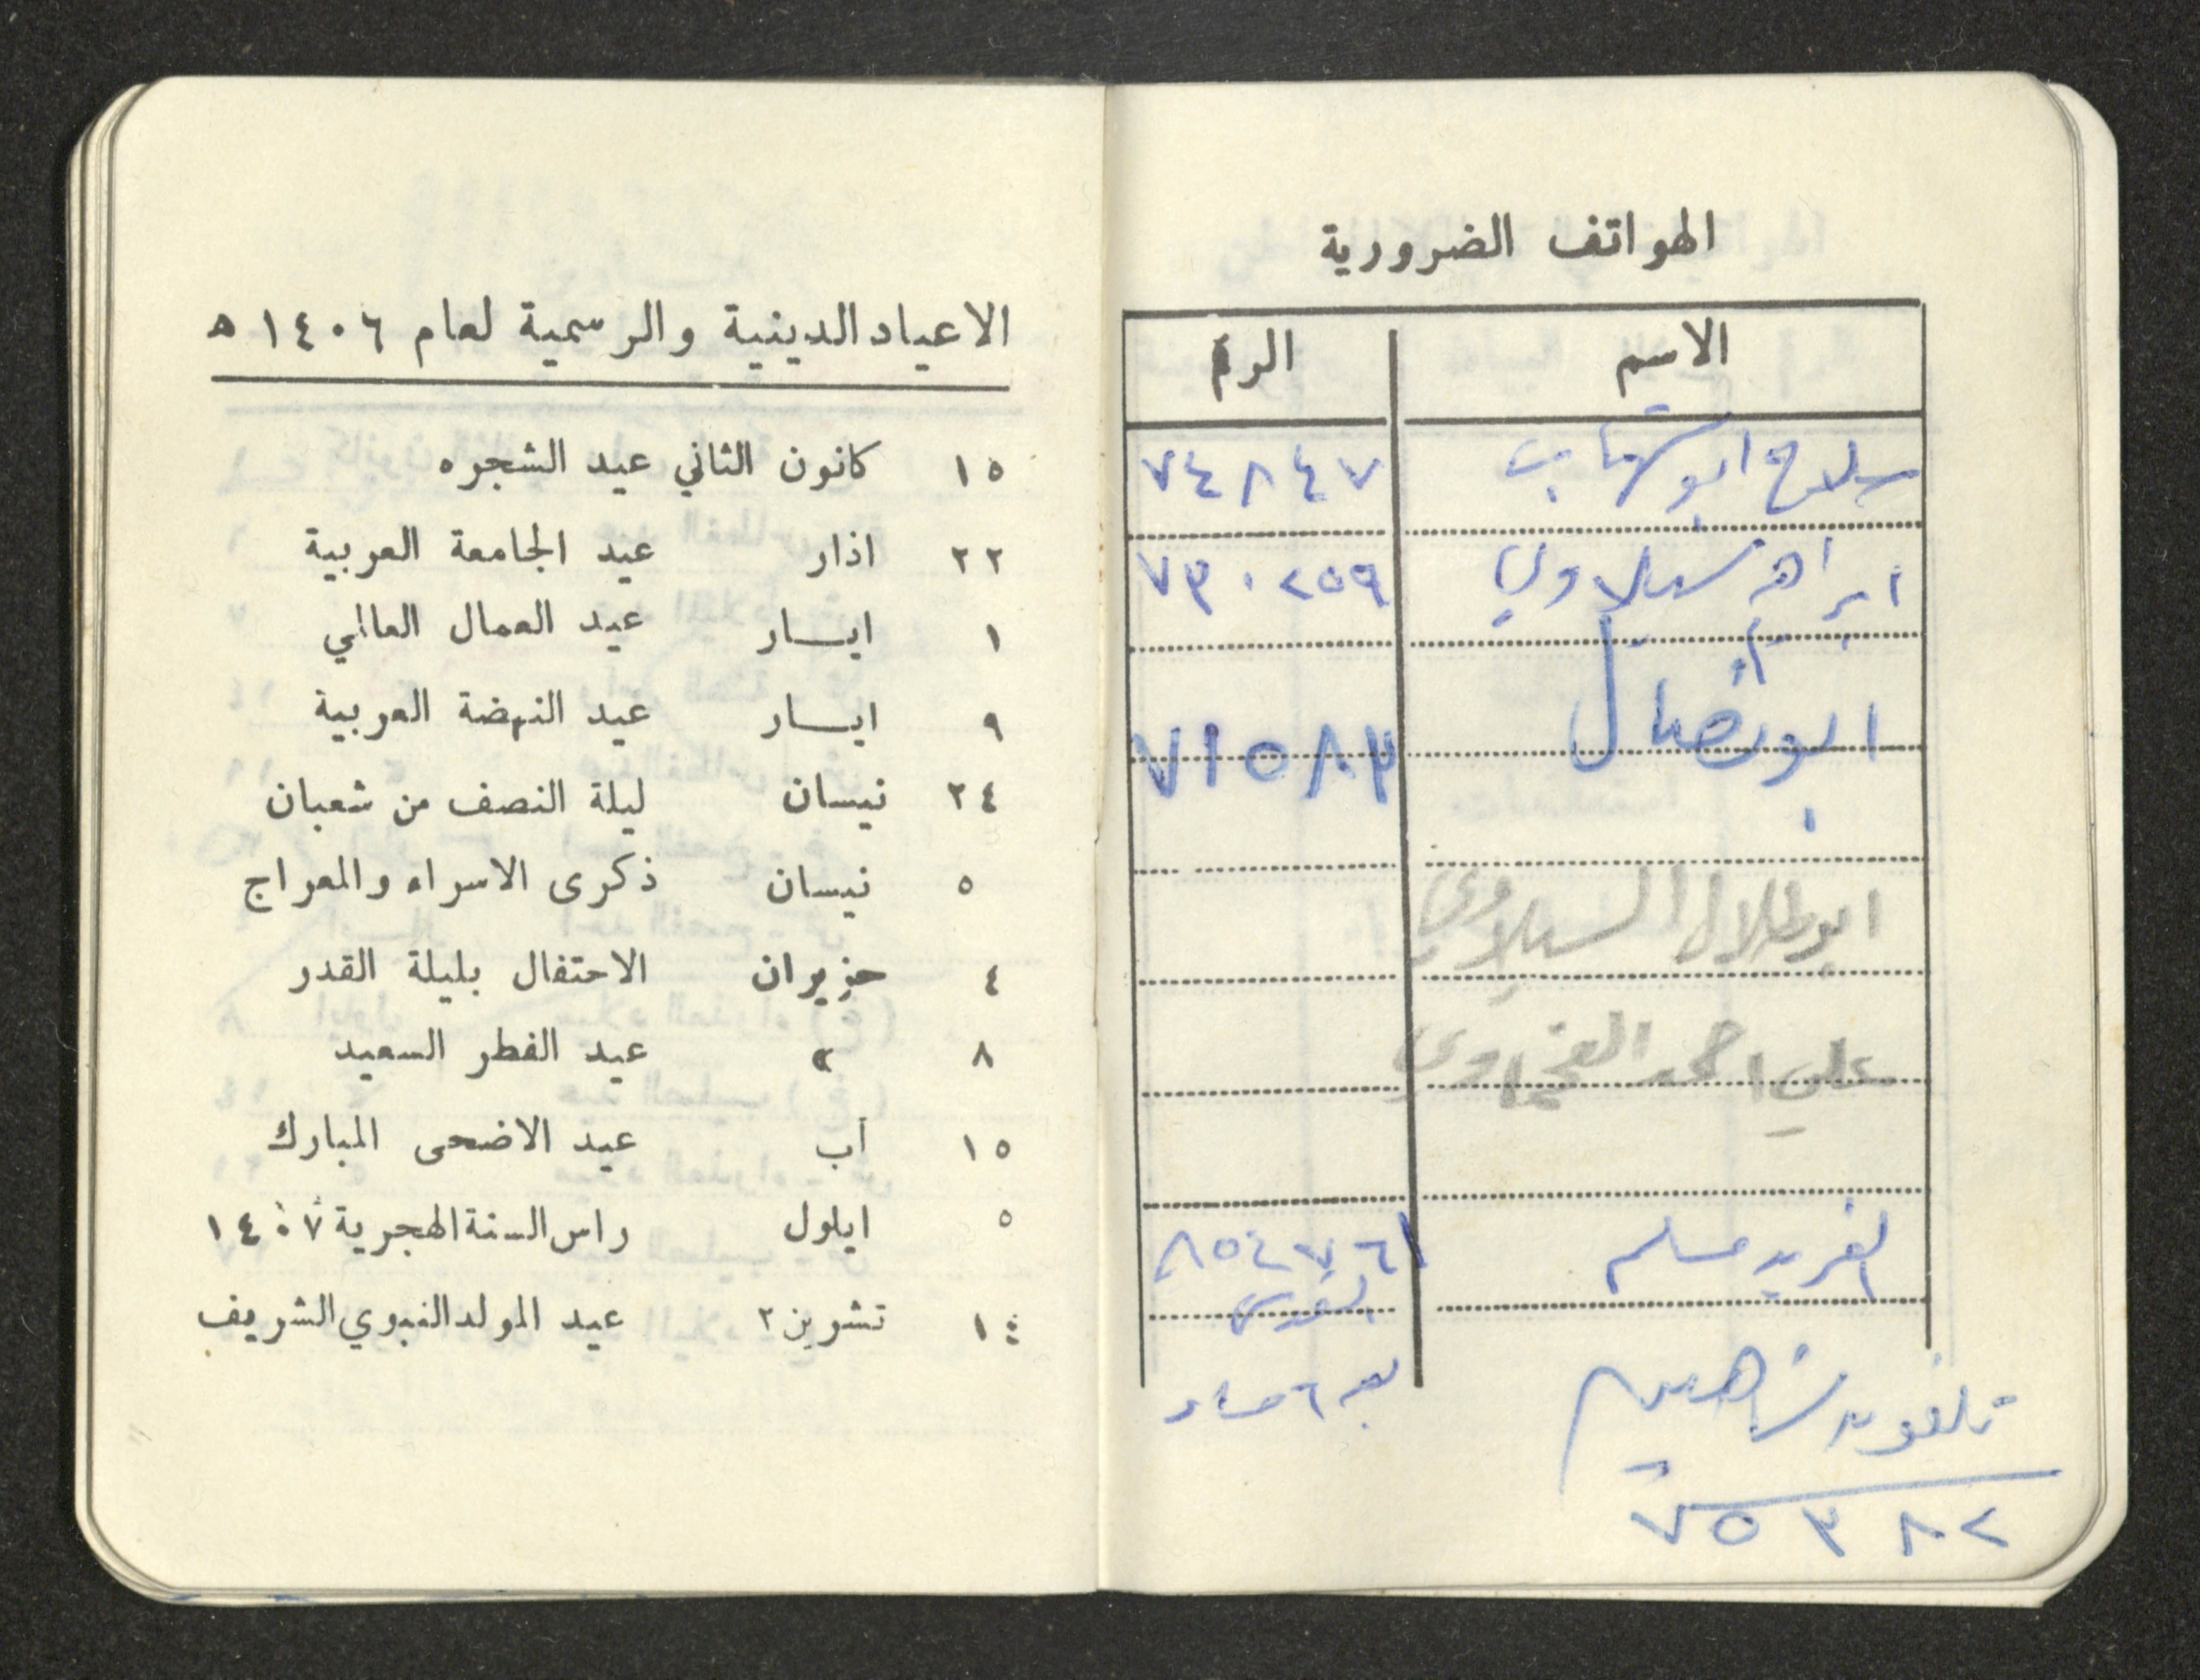 الهواتف الضرورية
الاسم الرقم
صلاح ابو شهاب ٧٤٨٤٧
ابراهيم سيلاوي ٧٣٠٢٥٩
ابو نضال ٧١٥٨٣
ابو طلال السيلاوي
علي احمد
الفريد مسلم ٨٥٤٧٦١
القدس
بعد ٦ مساء
تلفون شاهين
٧٥٣٨٢
الاعياد الدينية والرسمية لعام ١٤٠٦ ه
١٥ كانون الثاني عيد الشجره
٢٢ اذار عيد الجامعة العربية
١ ايــار عيد العمال العالمي
٩ ايــار عيد النهضة العربية
٢٤ نيسان ليلة النصف من شعبان
٥ نيسان ذكرى الاسراء والمعراج
٤ حزيران الاحتفال بليلة القدر
٨ » عيد الفطر السعيد
١٥ آب عيد الاضحى المبارك
٥ ايلول راس السنة الهجرية ١٤٠٧
١٤ تشرين ٢ عيد المولد النبوي الشريف